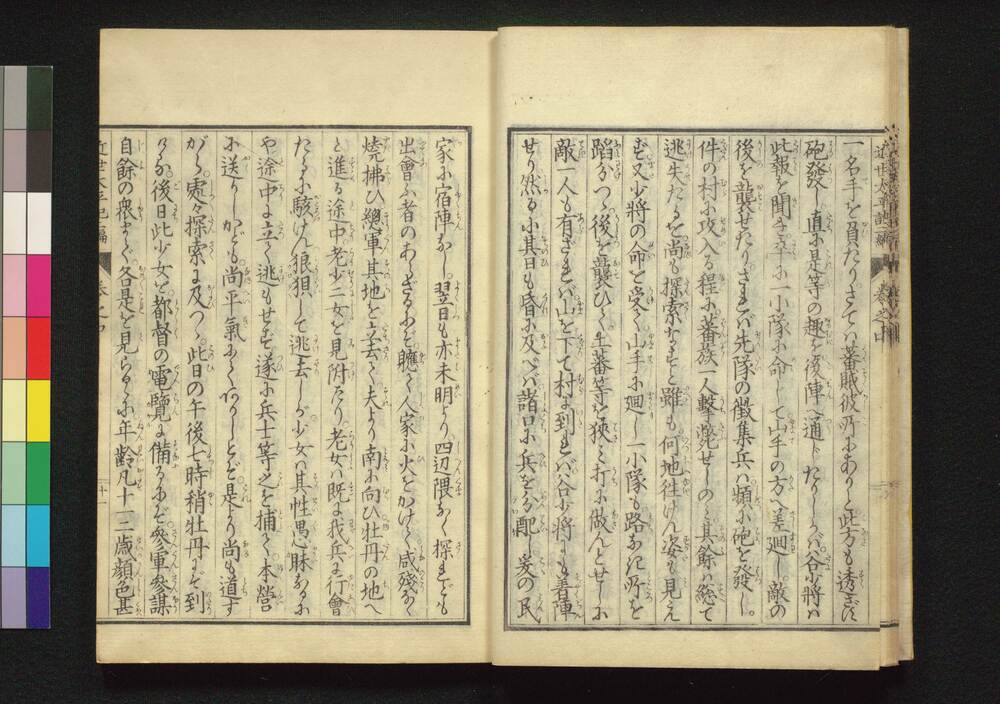 近世太平記二編 巻之四
一名手を負たりさてハ蕃賊彼所にありと此方も透さず
砲發し直に是等の趣を後陣へ通じたりしかバ谷少將ハ
此報を聞き一小隊に命して山手の方へ差廻し敵の
後を襲せたりされバ先隊の徴集兵ハ頻に砲を發し
件の村に攻入る程に蕃族一人撃斃せしのミ其餘ハ総て
逃失たるを尚も探索なすと雖も何地往けん姿も見え
ず又少將の命を受て山手に廻し一小隊も路なき所を
蹈わつゝ後を襲ひて生蕃等を狹ミ打に做んとせしに
敵一人も有ざれバ山を下て村に到れバ谷少將にも着陣
せり然るに其日も昏に及べバ諸口に兵を分配爰の民
家に宿陣なし翌日も亦未明より四辺隈なく探れども
出會ふ者のあらざるにぞ聽て人家に火をかけて咸殘なく
焼拂ひ總軍其地を立去て夫より南に向ひ牡丹の地へ
と進る途中老少二女を見附たり老女ハ既に我兵に行會
たるに駭けん狼狽して逃去しが少女ハ其性愚昧なるに
や途中に立て逃もせず遂に兵士等之を捕て本營
に送りしかども尚平氣にて個りしとぞ是より尚も道す
がら處々探索に及びつゝ此日の午後七時稍牡丹にぞ到
りぬ後日此少女を都督の電覽に備るにぞ參軍參謀
自餘の衆まて各是を見らるゝに年齢凡十一二歳顔色甚
近世太平記二編 巻之四 十一